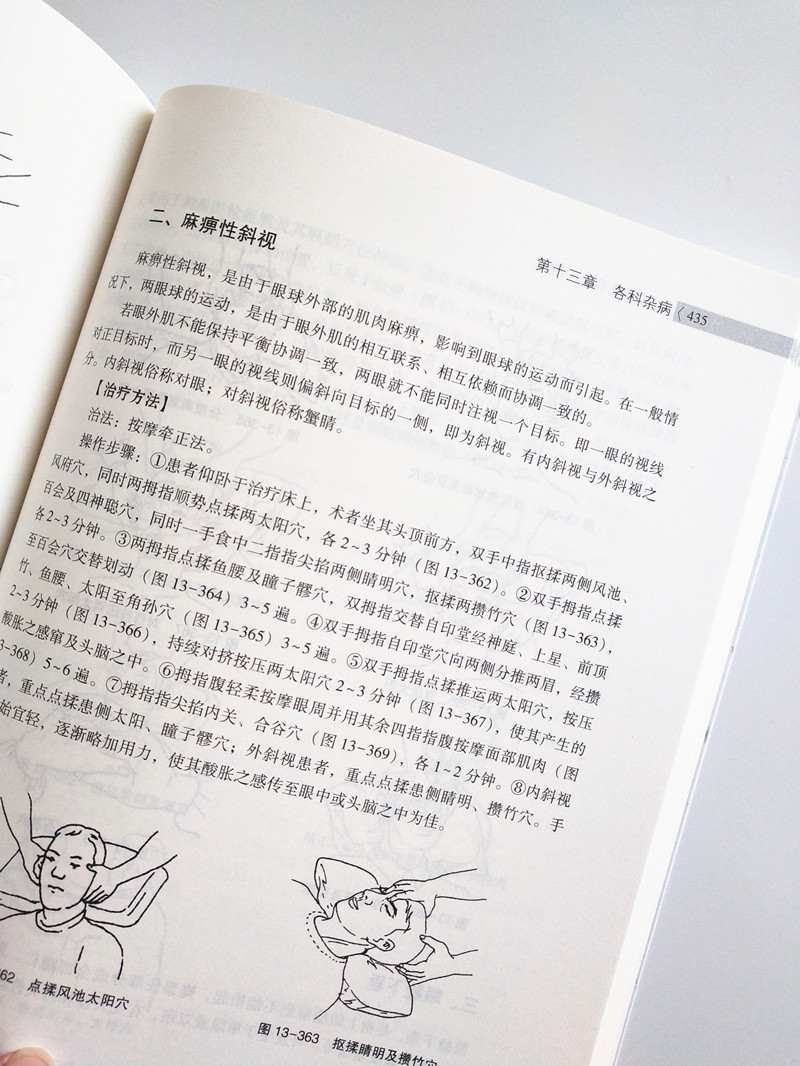 第十三章 各科杂病 435
二、麻痹性斜视
麻痹性斜视，是由于眼球外部的肌肉麻痹，影响到眼球的运动而引起。在一般情
况下，两眼球的运动，是由于眼外肌的相互联系、相互依赖而协调一致的。
若眼外肌不能保持平衡协调一致，两眼就不能同时注视一个目标。即一眼的视线
对正目标时，而另一眼的视线则偏斜向目标的一侧，即为斜视。有内斜视与外斜视之
分。内斜视俗称对眼；对斜视俗称蟹睛。
【治疗方法】
治法：按摩牵正法。
操作步骤：①患者仰卧于治疗床上，术者坐其头顶前方，双手中指抠揉两侧风池、
风府穴，同时两拇指顺势点揉两太阳穴，各2~3分钟（图13-362）。②双手拇指点揉
百会及四神聪穴，同时一手食中二指指尖掐两侧睛明穴，抠揉两攒竹穴（图13-363），
各2~3分钟。③两拇指点揉鱼腰及瞳子髎穴，双拇指交替自印堂经神庭、上星、前顶
至百会穴交替划动（图13-364）3~5遍。④双手拇指自印堂穴向两侧分推两眉，经攒
竹、鱼腰、太阳至角孙穴（图13-365）3~5遍。⑤双手拇指点揉推运两太阳穴，按压
2~3分钟（图13-366），持续对挤按压两太阳穴2~3分钟（图13-367），使其产生的
酸胀之感窜及头脑之中。⑥拇指腹轻柔按摩眼周并用其余四指指腹按摩面部肌肉（图
3-368）5~6遍。⑦拇指指尖掐内关、合谷穴（图13-369），各1~2分钟。⑧内斜视
者，重点点揉患侧太阳、瞳子髎穴；外斜视患者，重点点揉患侧睛明、攒竹穴。手
始宜轻，逐渐略加用力，使其酸胀之感传至眼中或头脑之中为佳。
62 点揉风池太阳穴
图 13-363 抠揉睛明及攒竹穴